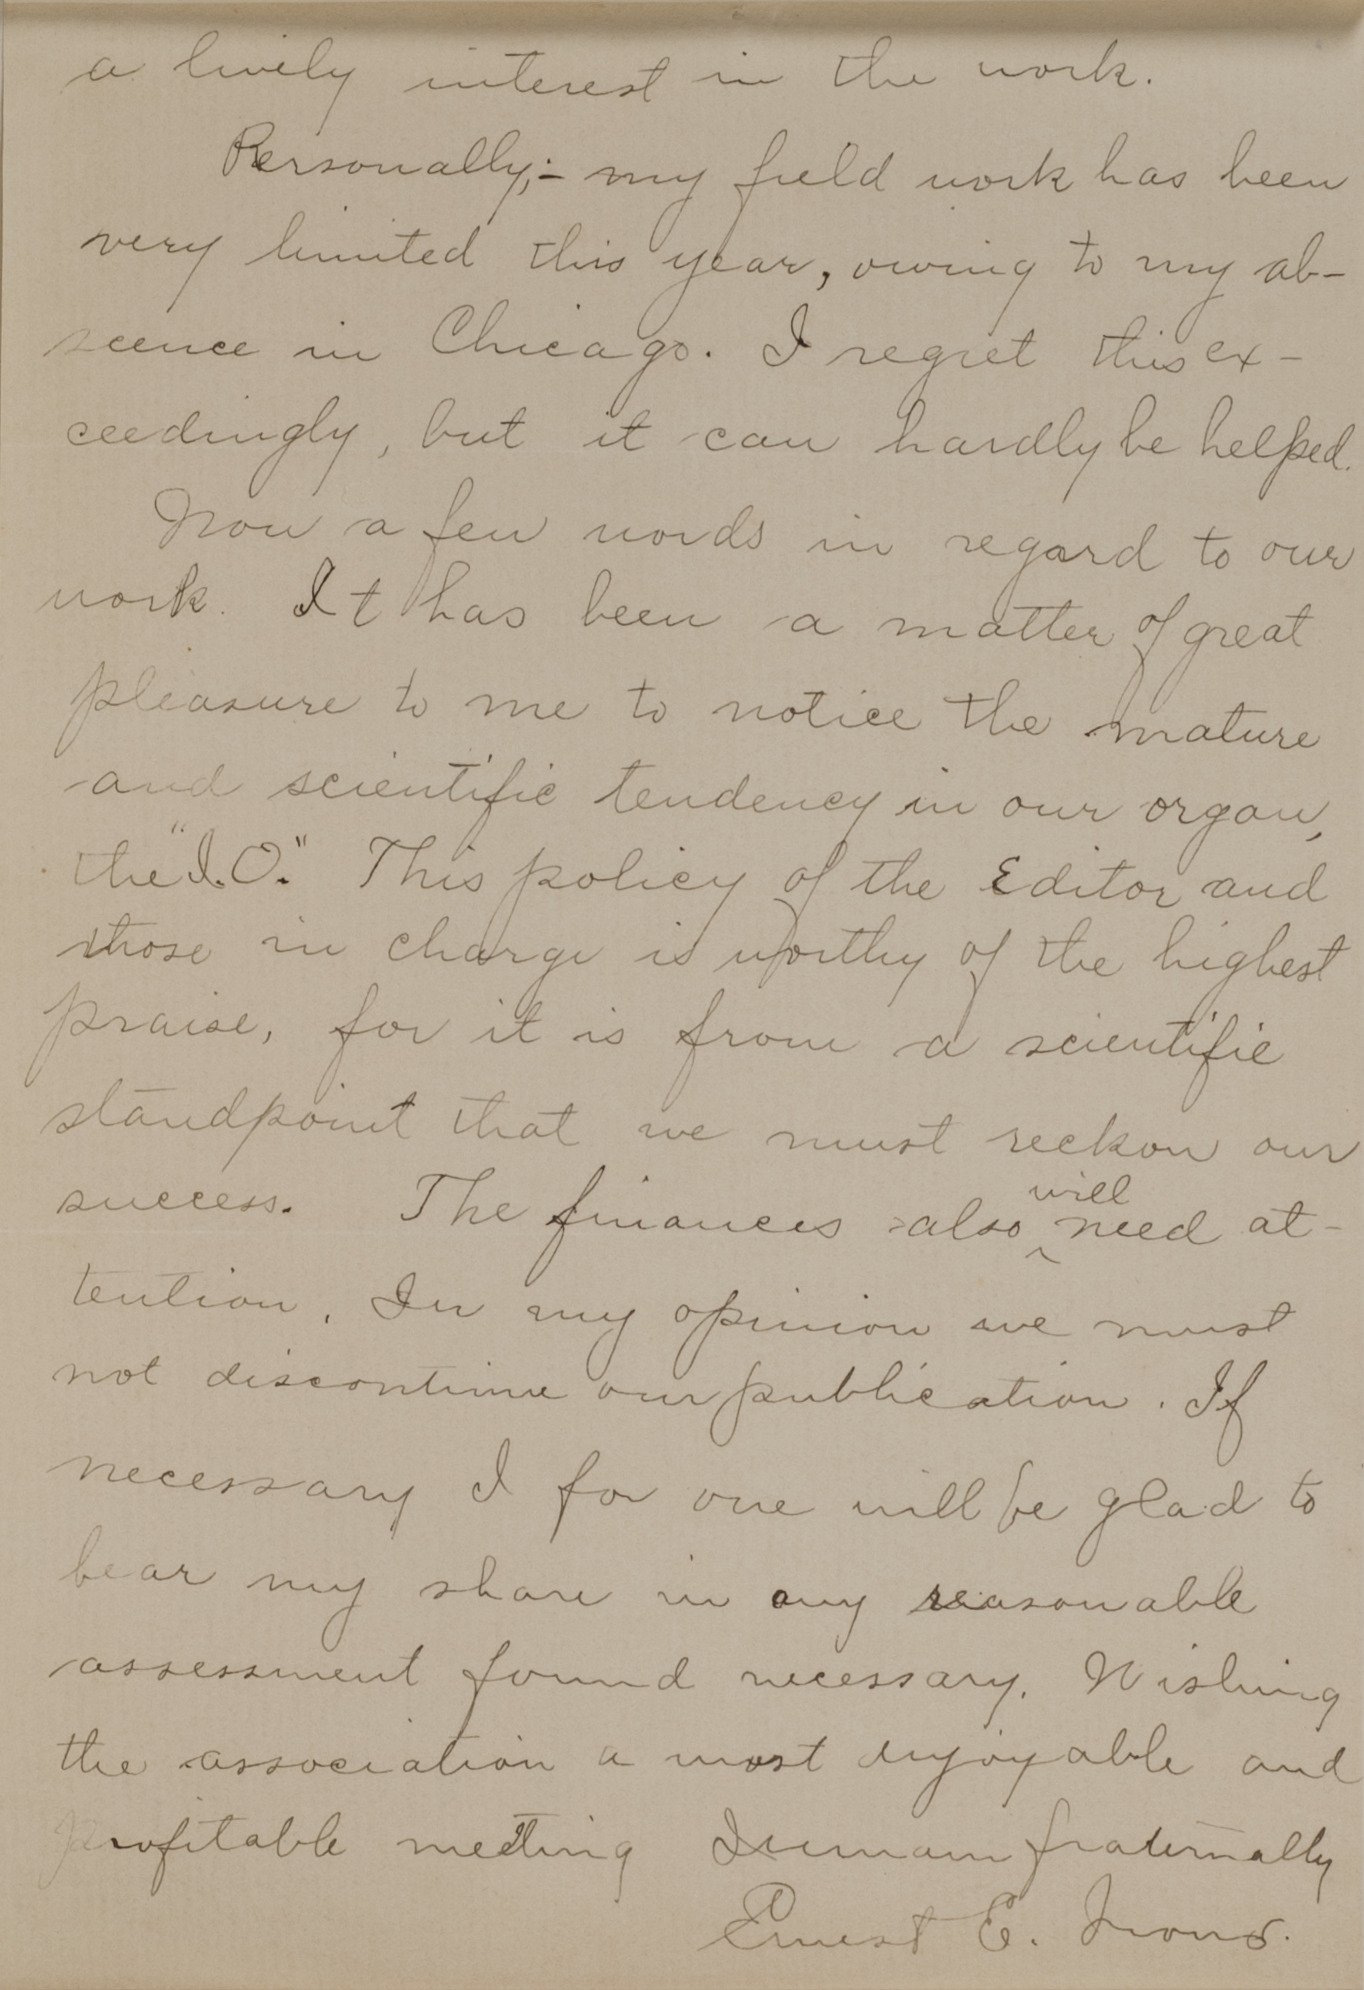 a lively interest in the work.
Personally;- my field work has been
very limited this year, owing to my ab-
scence in Chicago. I regret this ex-
ceedingly, but it can hardly be helped.
Now a few words in regard to our
work. It has been a matter of great
pleasure to me to notice the mature
and scientific tendency in our organ,
the "I.O." This policy of the Editor and
those in charge is worthy of the highest
praise, for it is from a scientific
standpoint that we must reckon our
success. The finances also will need at-
tention. In my opinion we must
not discontinue our publication. If
necessary I for one will be glad to
bear my share in any reasonable
assessment found necessary. Wishing
the association a most enjoyable and
profitable meeting I remain fraternally
Ernest E. Irons.